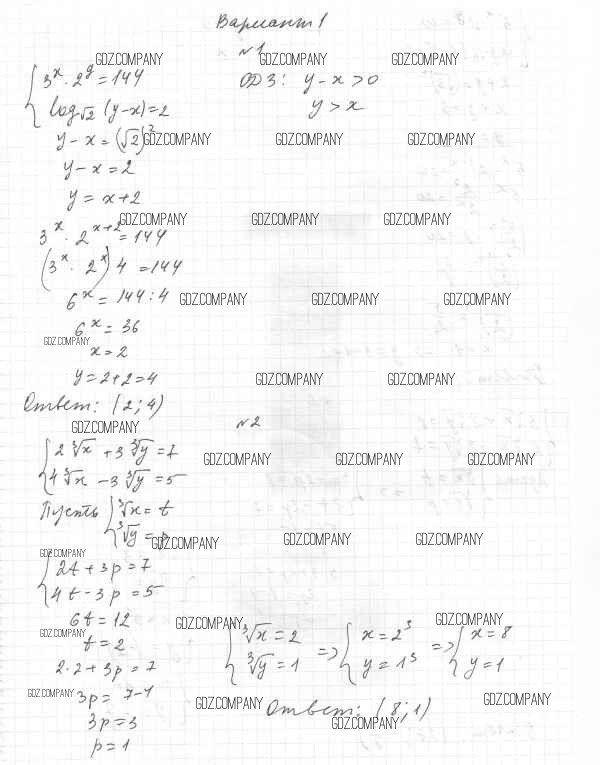 Вариант 1
№1
{ 3^x · 2^y = 144
log_√2 (y-x) = 2
ОДЗ: y-x>0
y>x
y-x = (√2)^2
y-x = 2
y = x+2
3^x · 2^(x+2) = 144
(3^x · 2^x) 4 = 144
6^x = 144:4
6^x = 36
x = 2
y = 2+2 = 4
Ответ: (2; 4)
№2
{ 2 ∛x + 3 ∛y = 7
4 ∛x - 3 ∛y = 5
Пусть { ∛x = t
∛y = p
{ 2t + 3p = 7
4t - 3p = 5
6t = 12
t = 2
2·2 + 3p = 7
3p = 7-4
3p = 3
p = 1
{ ∛x = 2 => { x = 2^3 => { x = 8
∛y = 1 y = 1^3 y = 1
Ответ: (8; 1)
GDZ.COMPANY GDZ.COMPANY GDZ.COMPANY
GDZ.COMPANY GDZ.COMPANY GDZ.COMPANY
GDZ.COMPANY GDZ.COMPANY GDZ.COMPANY
GDZ.COMPANY GDZ.COMPANY GDZ.COMPANY
GDZ.COMPANY GDZ.COMPANY GDZ.COMPANY
GDZ.COMPANY
GDZ.COMPANY GDZ.COMPANY GDZ.COMPANY
GDZ.COMPANY GDZ.COMPANY GDZ.COMPANY GDZ.COMPANY
GDZ.COMPANY GDZ.COMPANY GDZ.COMPANY
GDZ.COMPANY GDZ.COMPANY GDZ.COMPANY
GDZ.COMPANY